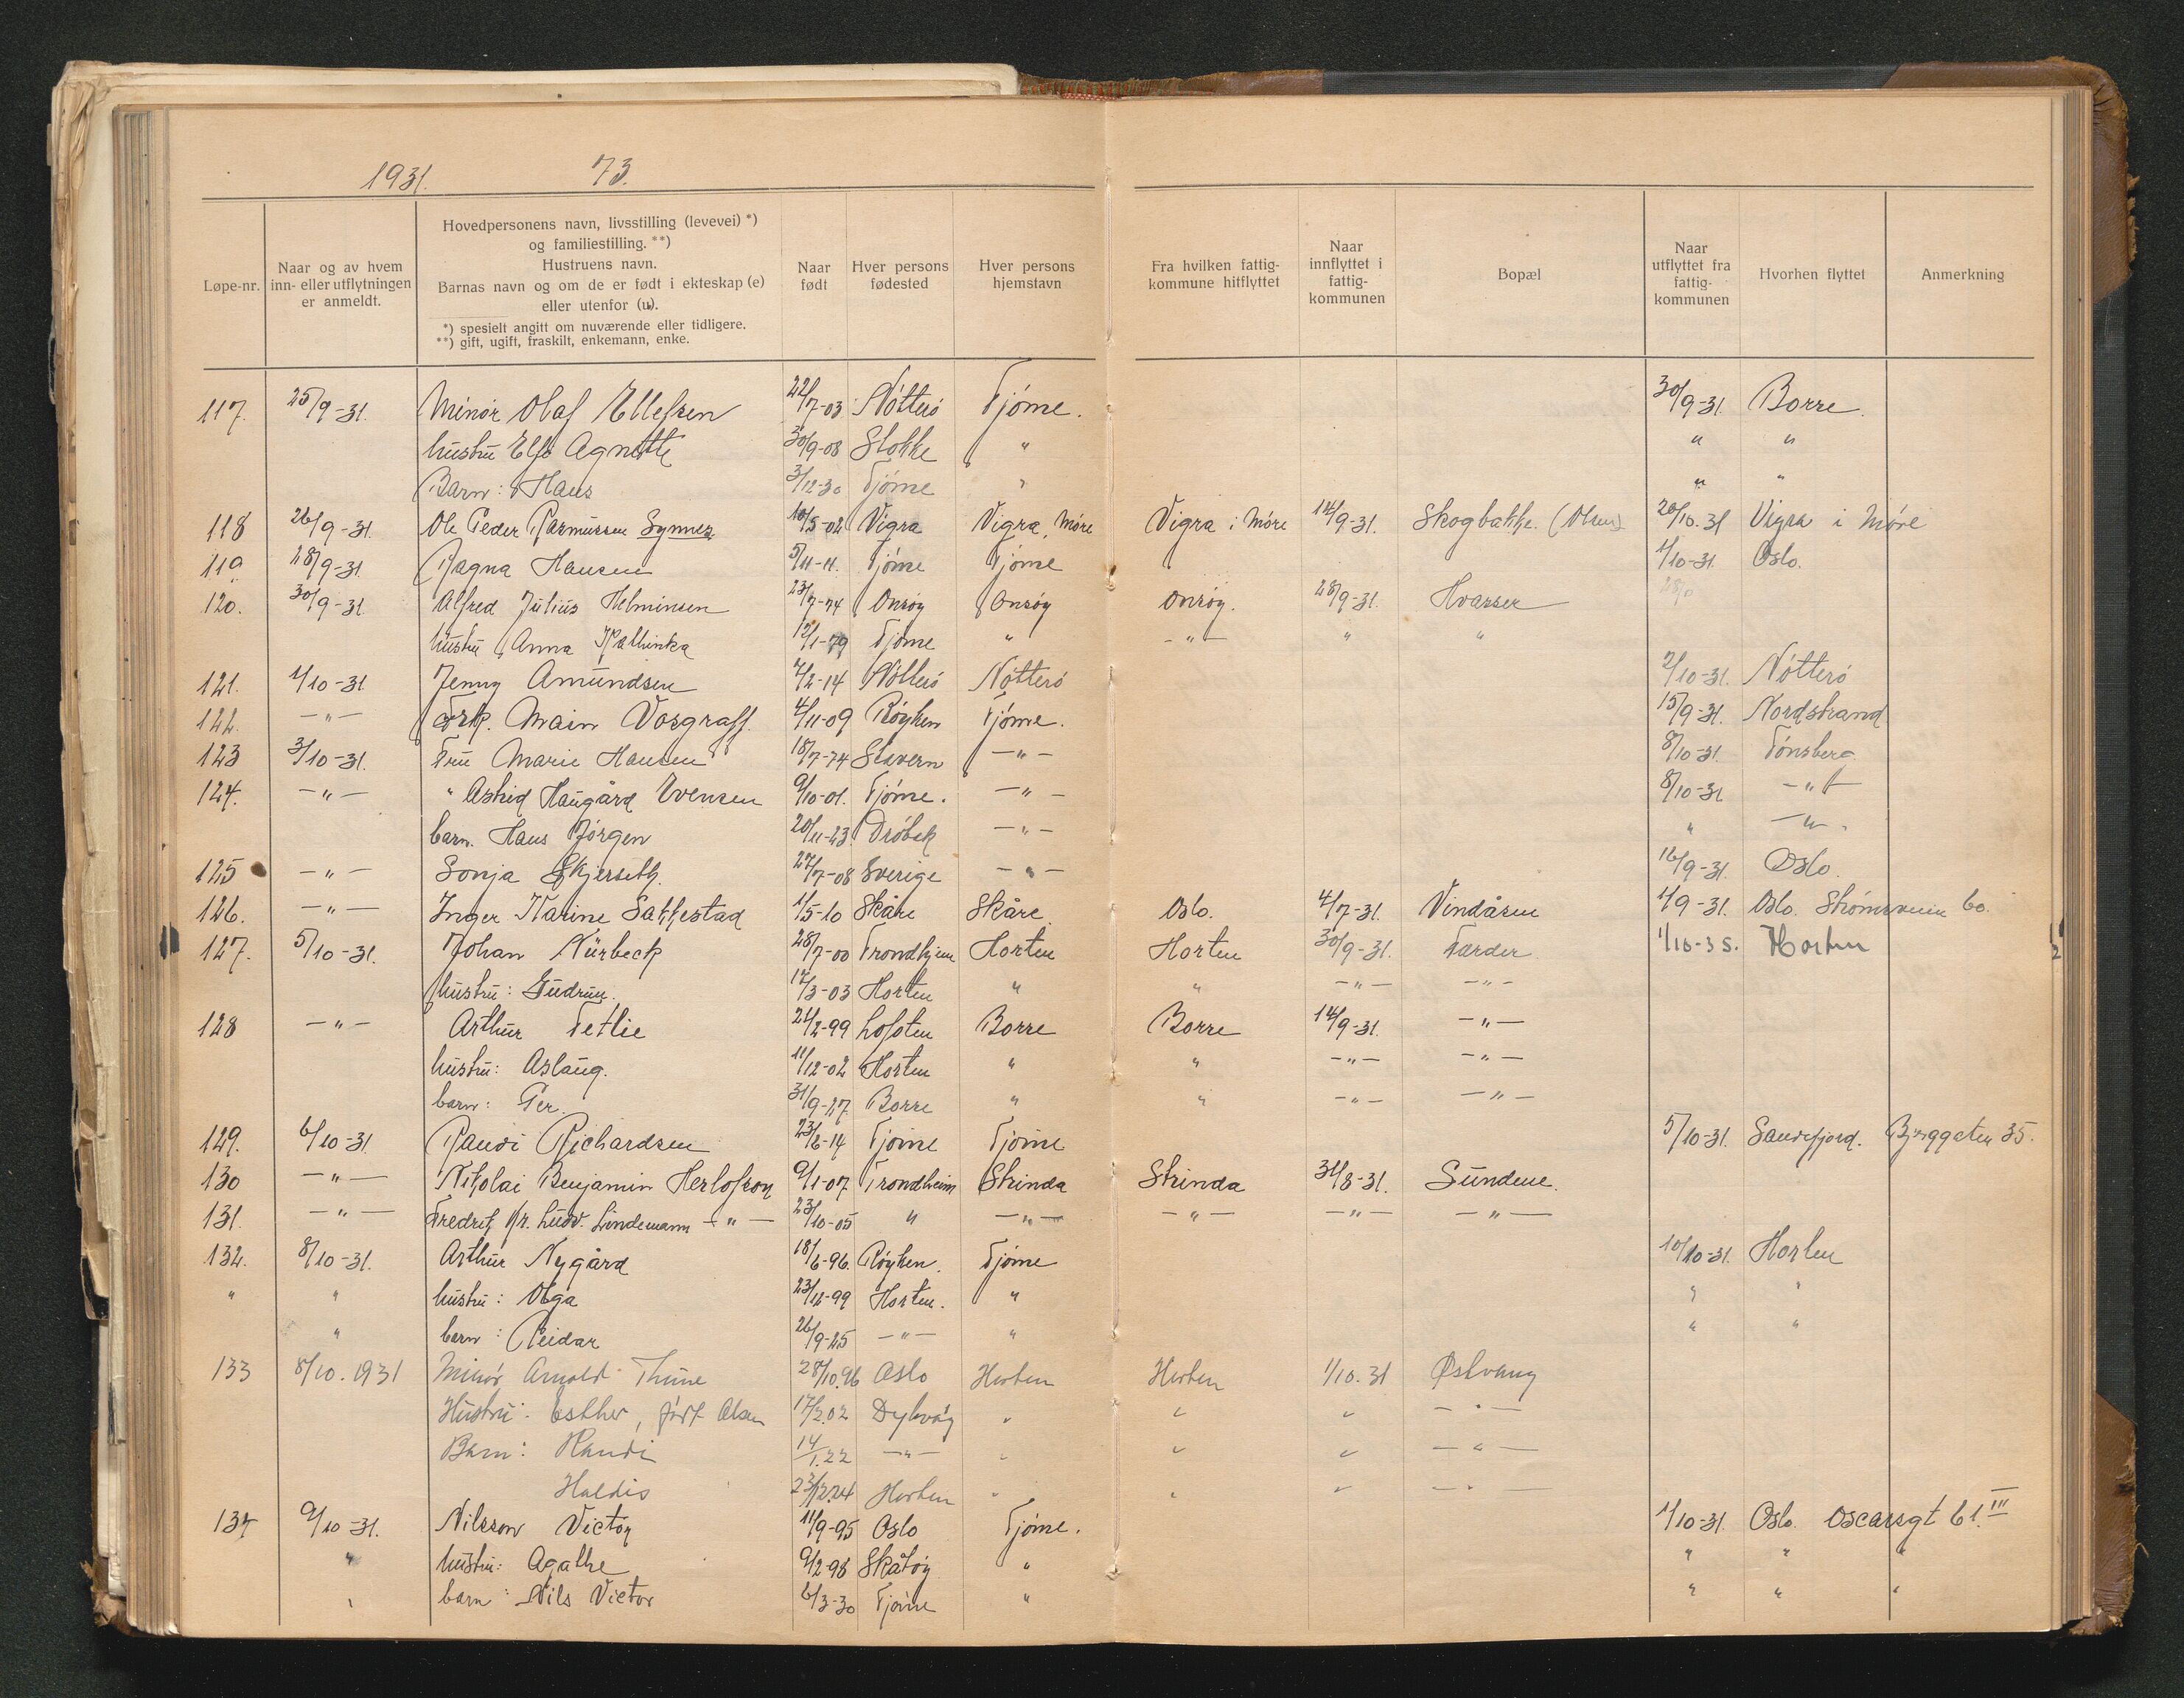 1931. 73.
Løpe-nr.
Naar og av hvem
inn- eller utflytningen
er anmeldt.
Hovedpersonens navn, livsstilling (levevei) *)
og familiestilling. **)
Hustruens navn.
Barnas navn og om de er født i ekteskap (e)
eller utenfor (u).
*) spesielt angitt om nuværende eller tidligere.
**) gift, ugift, fraskilt, enkemann, enke.
Naar
født
Hver persons
fødested
Hver persons
hjemstavn
Fra hvilken fattig-
kommune hitflyttet
Naar
innflyttet i
fattig-
kommunen
Bopæl
Naar
utflyttet fra
fattig-
kommunen
Hvorhen flyttet
Anmerkning
117. 25/9-31. Minør Olaf Ellefsen 22/7-03 Nötterö Tjöme. 30/9-31. Borre.
hustru Agnette 30/9-08 Stokke " " "
Barn: Hans 3/12-30 Tjöme " " "
118 26/9-31. Ole Peder Rasmussen Synnes 10/5-02 Vigra Vigra, Möre Vigra i Möre 14/9-31. Skogbakke. (Olsen) 20/10-31 Vigra i Möre
119. 28/9-31. Ragna Hansen 5/11-11. Tjöme Tjöme 1/10-31. Oslo.
120. 30/9-31 Alfred Julius Helminsen 23/7-74 Onsöy Onsöy Onsöy. 28/9-31. Hvasser
hustru Anna Kathinka 12/1-79 Tjöme " - " - " "
121. 1/10-31. Jenny Amundsen 7/2-14 Nötterö Nötterö 2/10-31. Nötterö
122. - " - Frk. Main Vosgraff. 4/11-09 Röyken Tjöme. 15/9-31. Nordstrand
123 3/10-31. Fru Marie Hansen 18/7-74 Stavern - " - 8/10-31. Tönsberg.
124. - " - " Astrid Haugård Evensen 9/10-01. Tjöme. - " - 8/10-31 - " -
barn. Hans Jörgen 20/11-23. Dröbak - " - " - " -
125 - " - Sonja Skjerseth. 27/7-08 Sverige - " - 16/9-31. Oslo.
126. - " - Inger Karine Sakkestad 1/5-10 Skåre Skåre. Oslo. 4/7-31. Vindåsen 1/9-31. Oslo. Strömsveien 60.
127. 5/10-31. Johan Nürbeck 28/7-00 Trondhjem Horten Horten 30/9-31. Færder Horten
hustru: Gudrun. 17/3-03 Horten " " - " - - " -
128 - " - Arthur Tetlie 21/2-99 Lofoten Borre Borre 14/9-31. - " -
hustru: Aslaug. 11/12-02 Horten " " - " - - " -
barn: Per. 31/9-27. Borre " " - " - - " -
129. 6/10-31 Randi Richardsen 23/6-14 Tjöme Tjöme 5/10-31. Sandefjord. Bjerggaten 35.
130 - " - Nikolai Benjamin Herlofson 9/1-07 Trondheim Strinda Strinda 31/8-31. Sundene.
131. - " - Fredrik Kr. Ludv. Lindemann - " - 23/10-05 " - " - - " - - " - - " -
132. 8/10-31. Arthur Nygård 18/6-96. Röyken. Tjöme 10/10-31. Horten
" " hustru: Olga 23/12-99 Horten. " " "
" barn: Reidar 26/9-25 - " - " " "
133 8/10.1931 Minør Arnold Thune 28/10.96 Oslo Horten Horten 1/10.31 Østvang
Hustru: Esther, født Olsen 17/2.02 Dybvåg " " " - " -
Barn: Randi 14/1.22 - " - " " " - " -
Haldis 23/12.24 Horten " " " - " -
134 9/10-31. Nilsson Victor 11/9-95 Oslo Tjöme. 1/10-31. Oslo. Oscarsgt 61. III
" hustru: Agathe 9/2-98 Skåtöy " " " "
" barn: Nils Victor 6/3-30 Tjöme " " " "